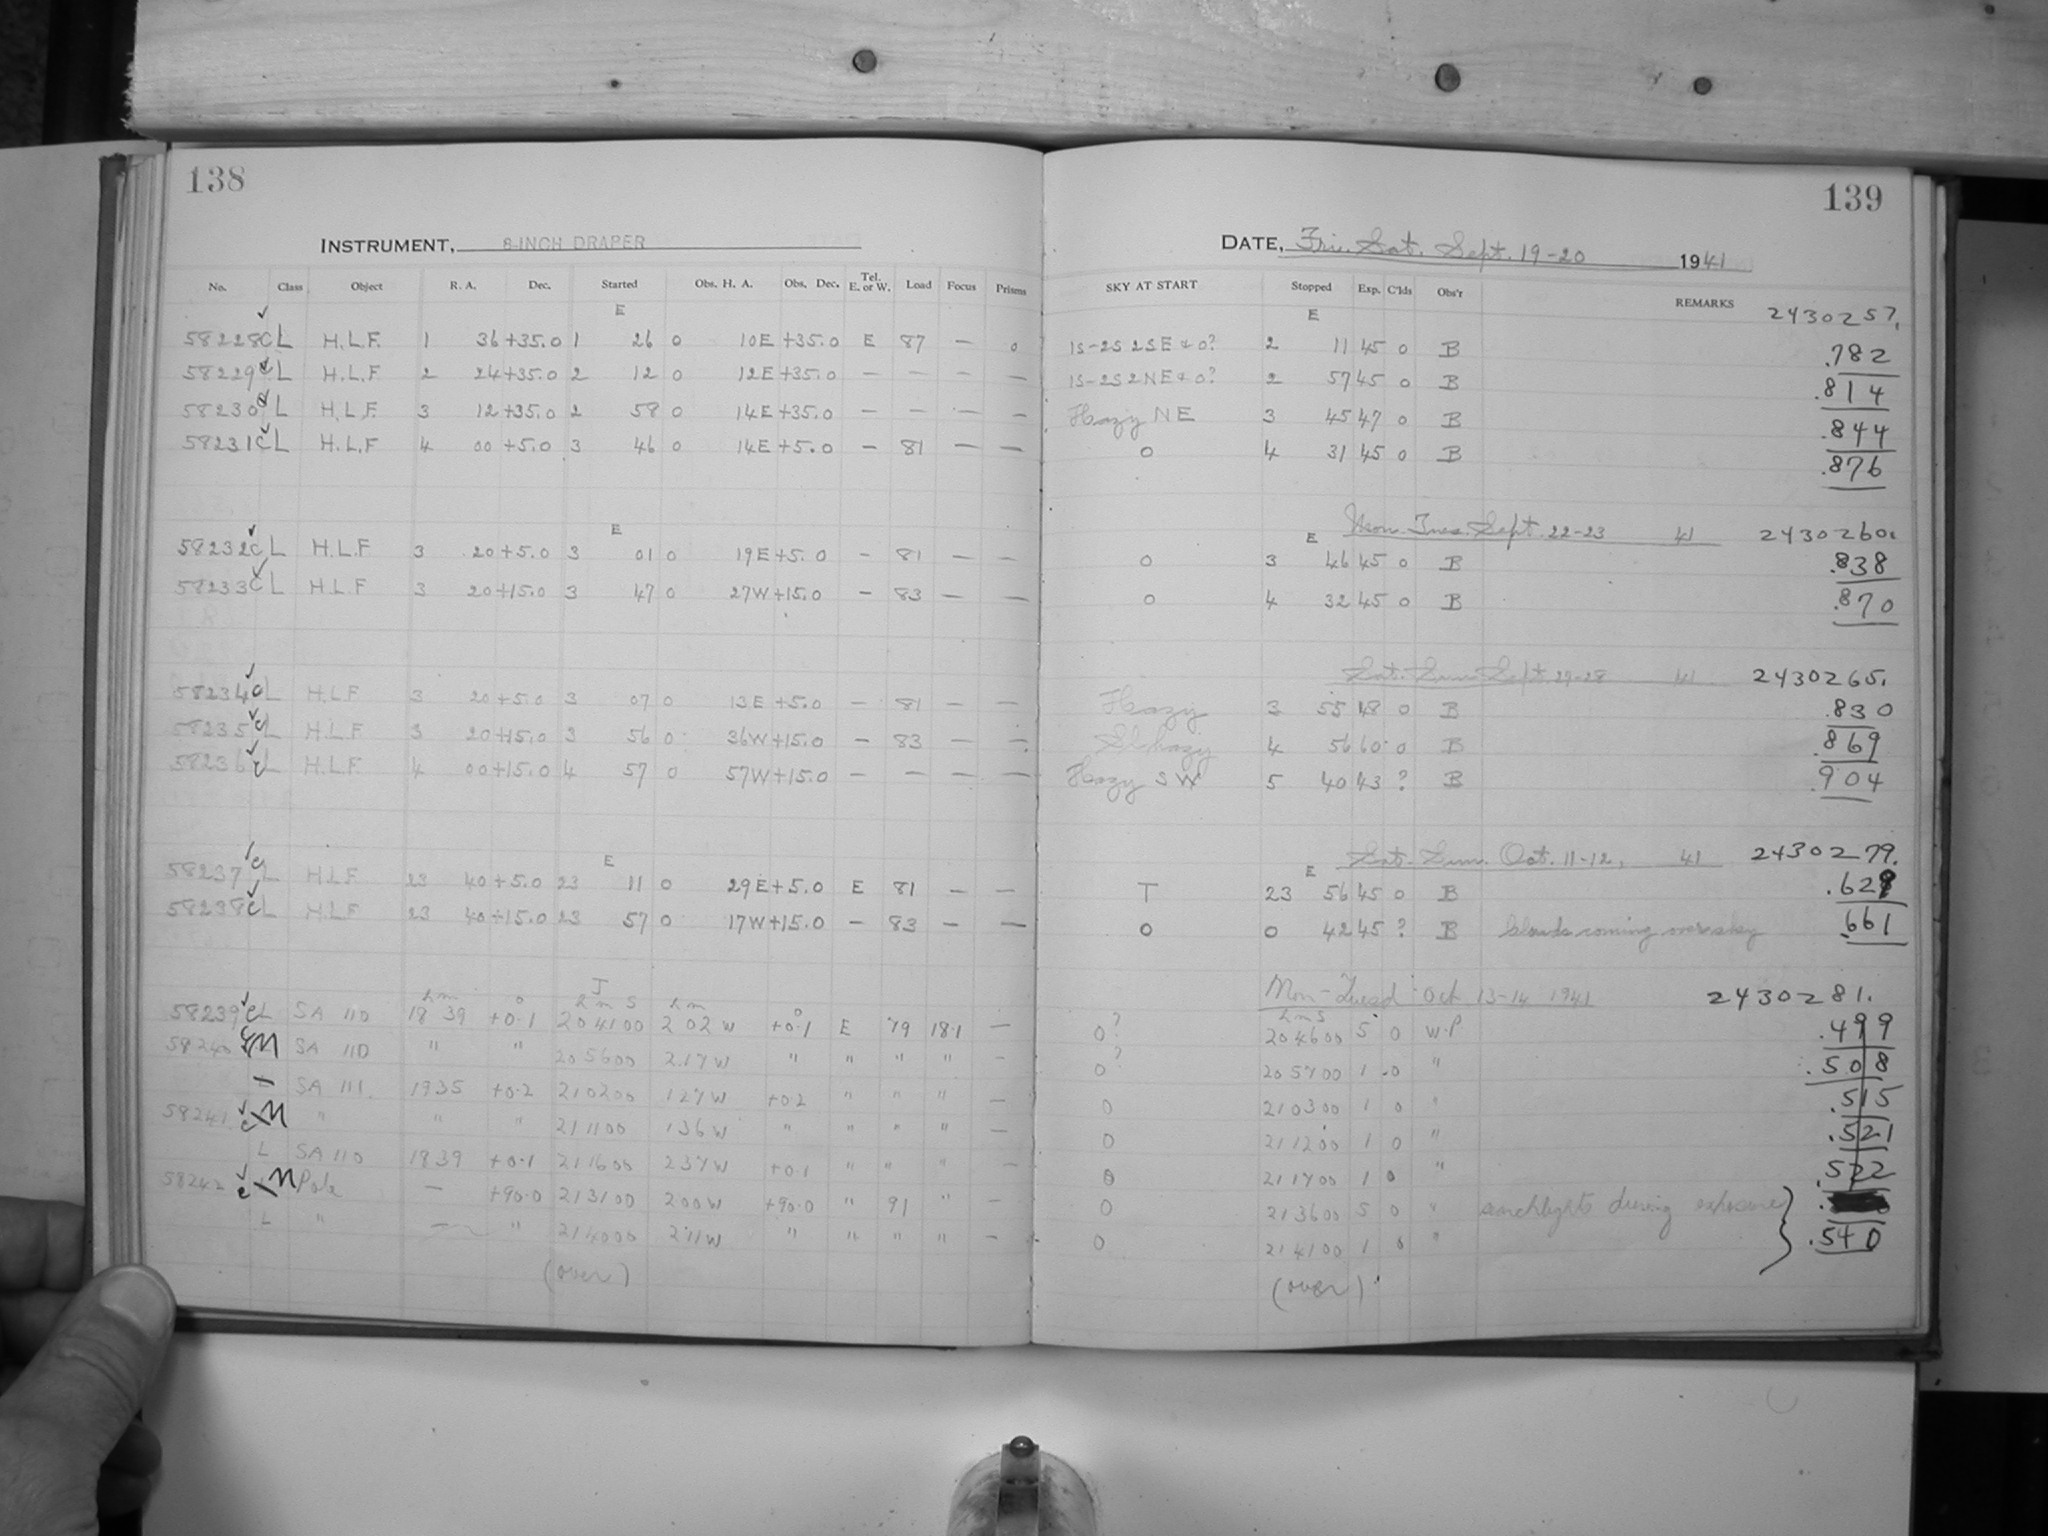 138
INSTRUMENT, 8-INCH DRAPER
No. Class Object R. A. Dec. Started Obs. H. A. Obs. Dec. Tel. E. or W. Load Focus Prisms
E
58228 C L H.L.F. 1 36 +35.0 1 26 0 10E +35.0 E 87 — 0
58229 C L H.L.F 2 24 +35.0 2 12 0 12E +35.0 — — — —
58230 C L H.L.F. 3 12 +35.0 2 58 0 14E +35.0 — — — —
58231 C L H.L.F 4 00 +5.0 3 46 0 14E +5.0 — 81 — —
E
58232 C L H.L.F 3 20 +5.0 3 01 0 19E +5.0 — 81 — —
58233 C L H.L.F 3 20 +15.0 3 47 0 27W +15.0 — 83 — —
58234 C L H.L.F 3 20 +5.0 3 07 0 13E +5.0 — 81 — —
58235 C L H.L.F 3 20 +15.0 3 56 0 36W +15.0 — 83 — —
58236 C L H.L.F. 4 00 +15.0 4 57 0 57W +15.0 — — — —
E
58237 C L H.L.F. 23 40 +5.0 23 11 0 29E +5.0 E 81 — —
58238 C L H.L.F 23 40 +15.0 23 57 0 17W +15.0 — 83 — —
J
h m o h m s h m o
58239 C L SA 110 18 39 +0.1 20 41 00 2 02 W +0.1 E 79 18.1 —
58240 C M SA 110 " " 20 56 00 2.17 W " " " " —
L SA 111. 19 35 +0.2 21 02 00 1 27 W +0.2 " " " —
58241 C M " " " 21 11 00 1 36 W " " " " —
L SA 110 18 39 +0.1 21 16 00 2 37 W +0.1 " " " —
58242 C M Pole — +90.0 21 31 00 2 00 W +90.0 " 91 " —
L " — " 21 40 00 2 11 W " " " " —
(over)
139
DATE, Fri. Sat. Sept. 19-20 1941
SKY AT START Stopped Exp. C'lds Obs'r REMARKS 2430257.
E
1S-2S 2SE & 0? 2 11 45 0 B .782
1S-2S 2NE & 0? 2 57 45 0 B .814
Hazy NE 3 45 47 0 B .844
0 4 31 45 0 B .876
E Mon. Tues. Sept. 22-23 41 2430260.
0 3 46 45 0 B .838
0 4 32 45 0 B .870
Sat. Sun. Sept 27-28 41 2430265.
Hazy 3 55 48 0 B .830
Sl. hazy 4 56 60 0 B .869
Hazy SW 5 40 43 ? B .904
E Sat. Sun. Oct. 11-12, 41 2430279.
T 23 56 45 0 B .629
0 0 42 45 ? B Clouds coming over sky .661
Mon - Tuesd Oct 13-14 1941 2430281.
h m s
0? 20 46 00 5 0 W.P .499
0? 20 57 00 1 0 " .508
0 21 03 00 1 0 " .515
0 21 12 00 1 0 " .521
0 21 17 00 1 0 " .522
0 21 36 00 5 0 " searchlights during exposure
0 21 41 00 1 0 " .540
(over)